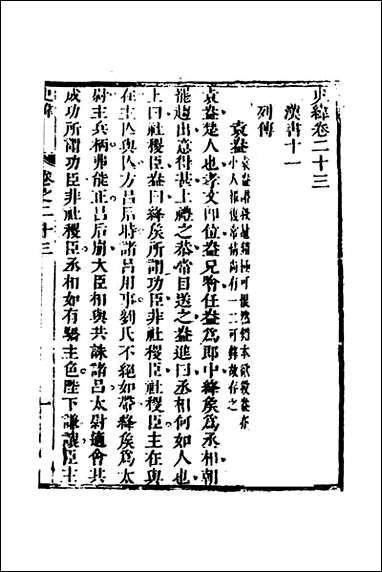 史緯卷二十三
漢書十一
列傳
袁盎
袁盎楚人也孝文即位盎兄噲任盎爲郎中絳矦爲丞相朝
罷趨出意得甚上禮之恭常目送之盎進曰丞相何如人也
上曰社稷臣盎曰絳矦所謂功臣非社稷臣社稷臣主在與
在主亾與亾方呂后時諸呂用事劉氏不絕如帶絳矦爲太
尉主兵柄弗能正呂后崩大臣相與共誅諸呂太尉適會其
成功所謂功臣非社稷臣丞相如有驕主色陛下謙讓臣主
史緯
卷之二十三